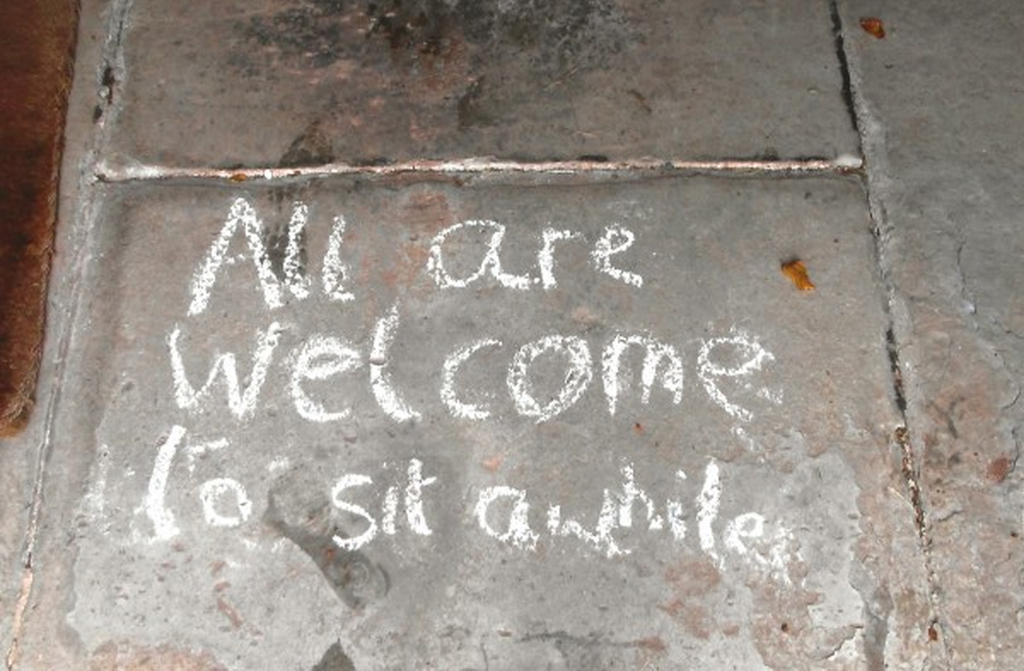 All are
Welcome
to sit awhile